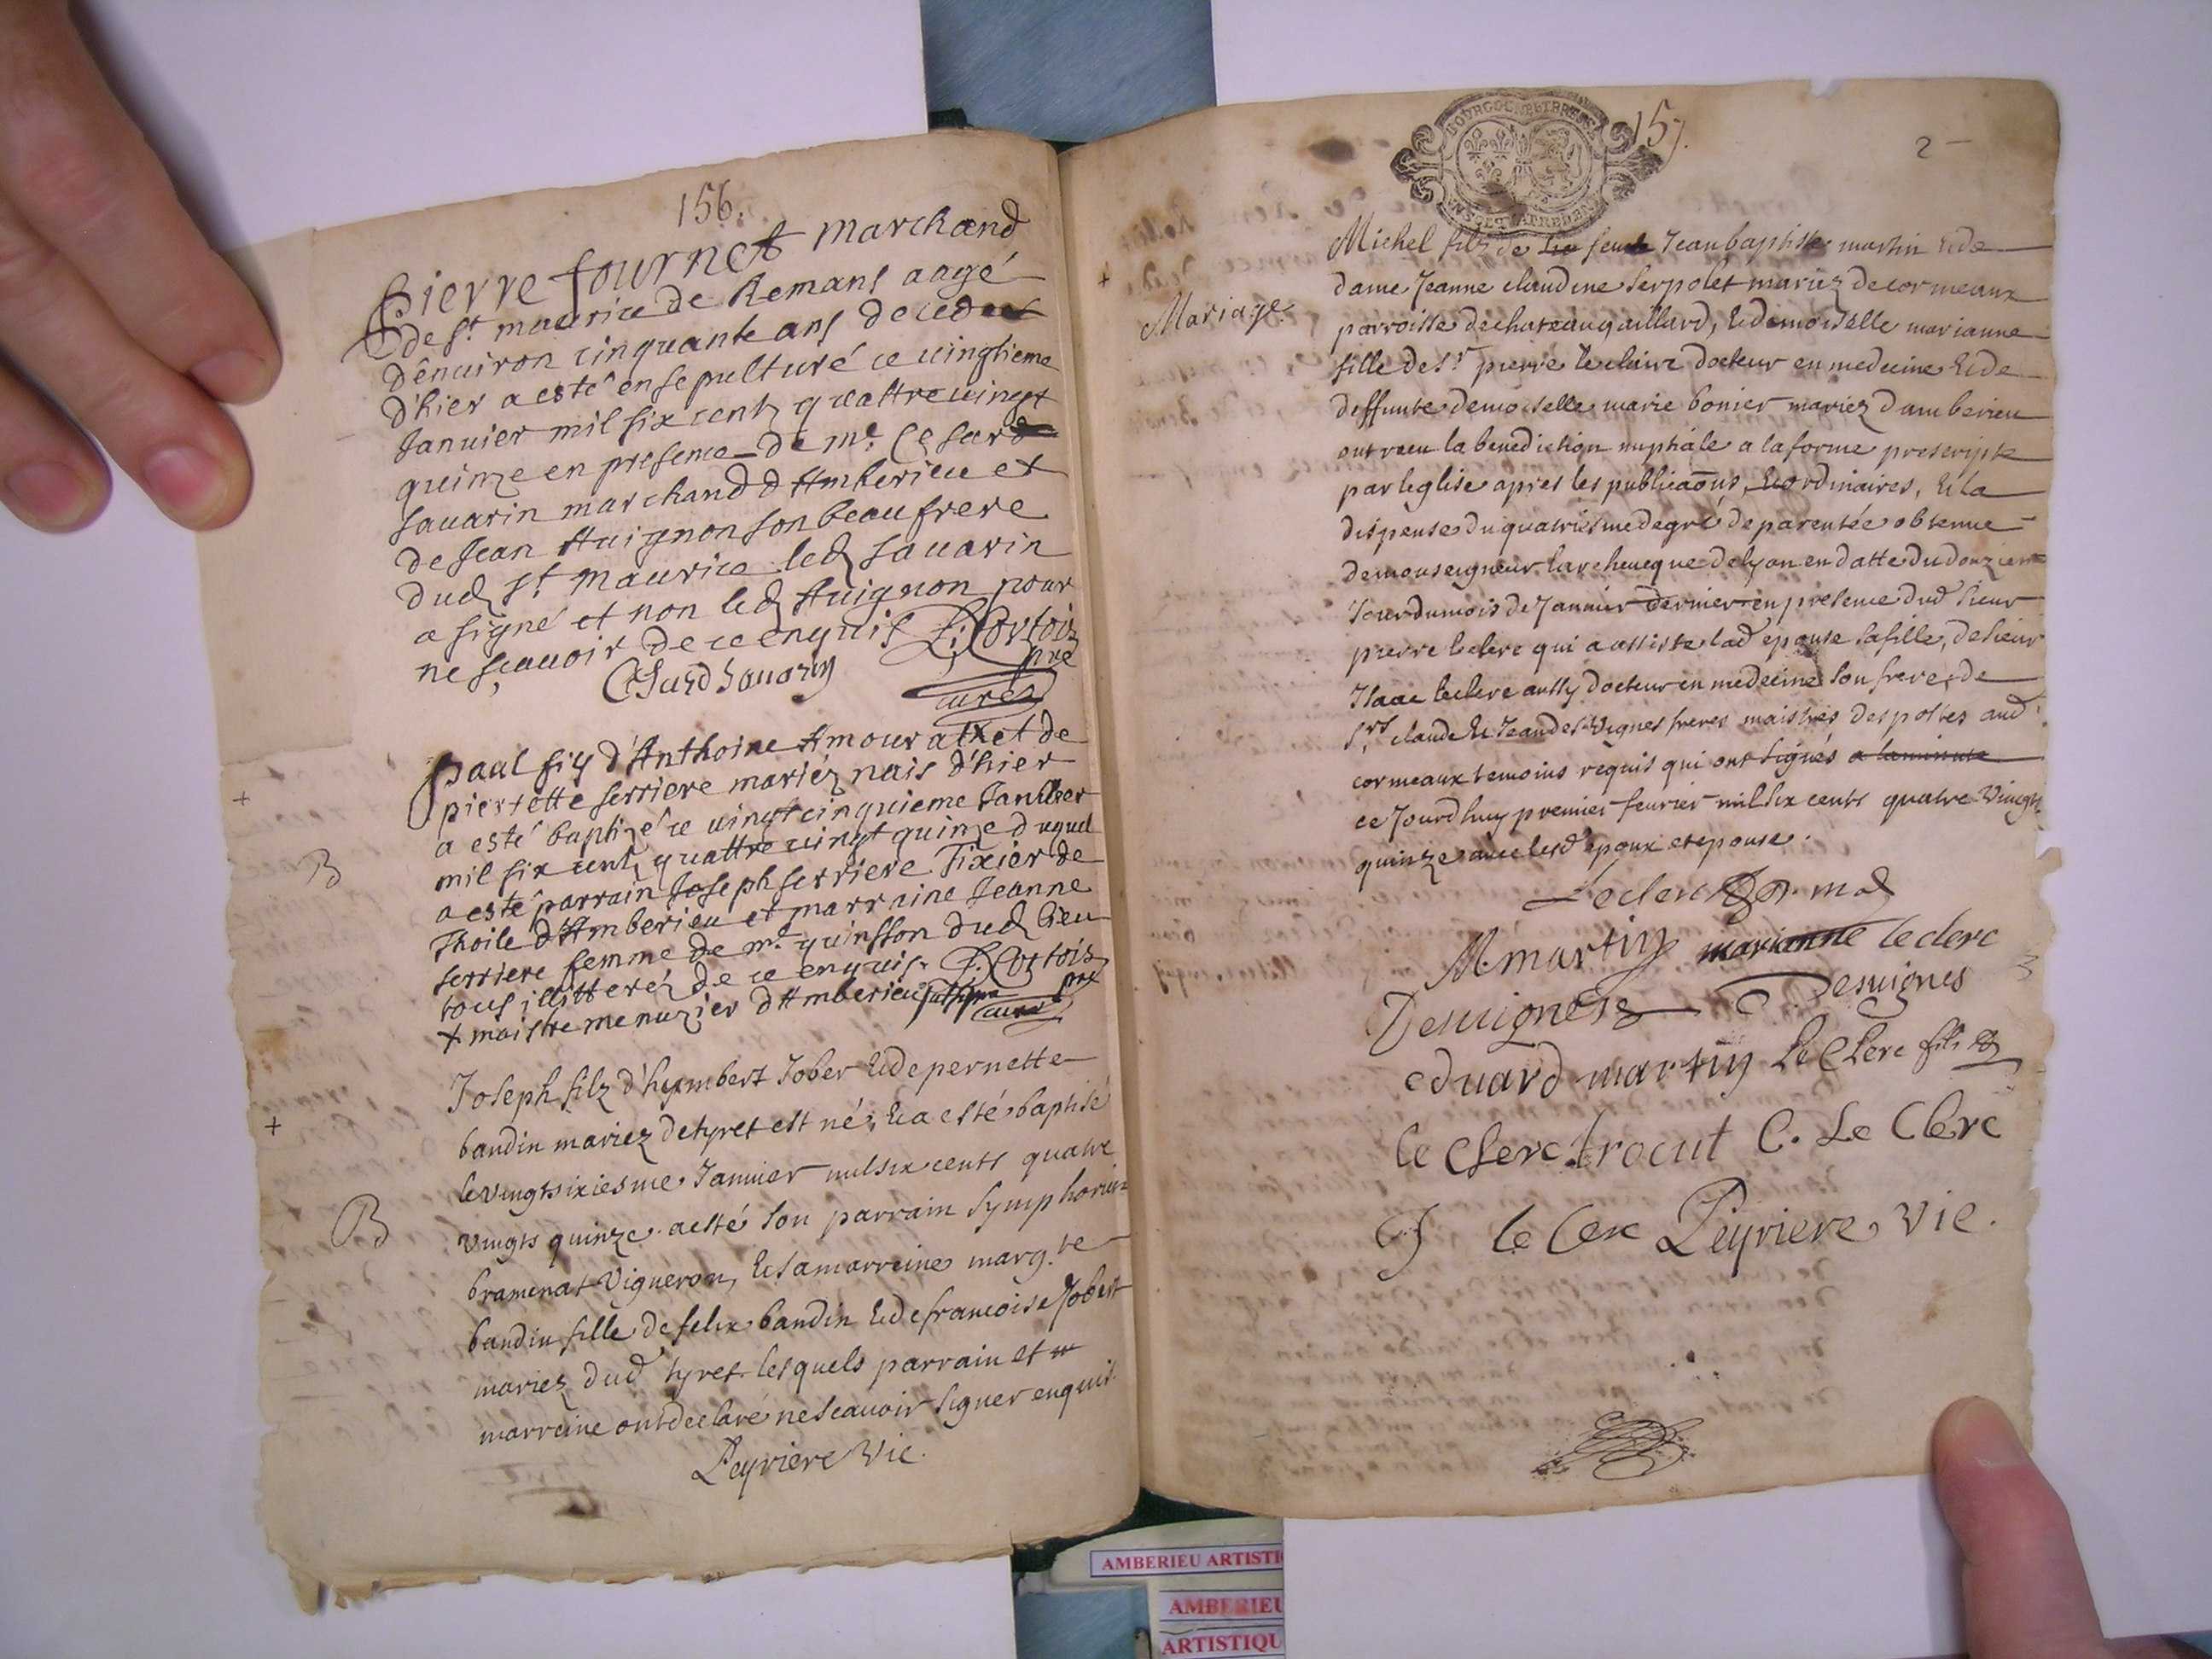 156.
Pierre fournet marchand
de St maurice de Remans aagé
d'enuiron cinquante ans decedect
d'hier a esté ensepulturé ce uingtieme
Januier mil six centz quattre uingt
quinze en presence de me Cesard
sauarin marchand d'Amberieu et
de Jean Auignon son beau frere
dud St maurice led sauarin
a signé et non led Auignon pour
ne sçauoir de ce enquis P. Cortois
pre
Cesard Sauarin
curé
Paul fis d'Anthoine Amour a X et de
pierrette serriere mariéz nais d'hier
a esté baptizé ce uingt cinquieme Januier
mil six centz quattre uingt quinze duquel
a esté parrain Joseph serriere Tixier de
Thoile d'Amberieu et marraine Jeanne
serriere femme de me quinsson dud lieu
tous illitteréz de ce enquis. P. Cortois
pre
X maistre menuzier d'Amberieu
curé
B
Joseph filz d'humbert Jober & de pernette
baudin mariez de tyret est né, & a esté baptisé
le vingtsixiesme Januier mil six cents quatre
vingts quinze. a esté son parrain Symphorien
bramenat vigneron, & sa marreine marg.te
baudin fille de felix baudin & de francoise Jobert
mariez dud tyret lesquels parrain et m
marreine ont declaré ne scauoir signer enquis.
Peyriere Vic.
B
BOURGOGNE ET BRESSE
157.
2
Mariage
Michel filz de feu Jean baptiste martin & de
dame Jeanne claudine Serpolet mariez de cormeaux
parroisse de chateaugaillard, & demoiselle marianne
fille de Sr pierre leclerc docteur en medecine & de
deffunte demoiselle marie bonier mariez damberieu
ont receu la benediction nuptiale a la forme prescripte
par leglise apres les publicaōns, & ordinaires, & la
dispense du quatriesme degré de parentée obtenue
de monseigneur larcheuecque de lyon en datte du douziem
Jour du mois de Januier dernier en presence dud sieur
pierre leclerc qui a assisté lad epouse sa fille, de sieur
Isaac leclerc aussy docteur en medecine son frere, de
Srs claude & Jean desvignes freres maistres des postes aud
cormeaux temoins requis qui ont signés a la minute
ce Jourdhuy premier feurier mil six cents quatre vingts
quinze auec lesd epoux et epouse.
Leclerc
M martin marianne leclerc
Desuignes Desuignes
eduard martin Le Clerc fils
le Clerc trocut C. Le Clerc
J le Clerc Peyriere Vic.
AMBERIEU ARTISTI
AMBERIEU
ARTISTIQU